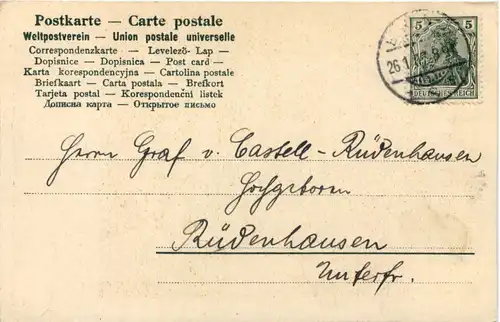 Postkarte — Carte postale
Weltpostverein — Union postale universelle
Correspondenzkarte — Levelező-Lap —
Dopisnice — Dopisnica — Post card —
Karta korespondencyjna — Cartolina postale
Briefkaart — Carta postala — Brefkort
Tarjeta postal — Korespondenční listek
Дописна карта — Открытое письмо
5 5
DEUTSCHES REICH
26.1.
Herrn Graf v. Castell-Rüdenhausen
Hochgeboren
Rüdenhausen
Unterfr.